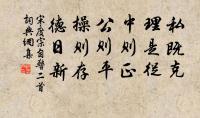 私既克
理是從
中則正
公則平
操則存
德日新
宋度宗自警二首
詞典網集